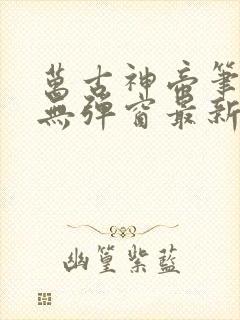 萬古神帝筆
無彈窗最新
幽篁紫藍